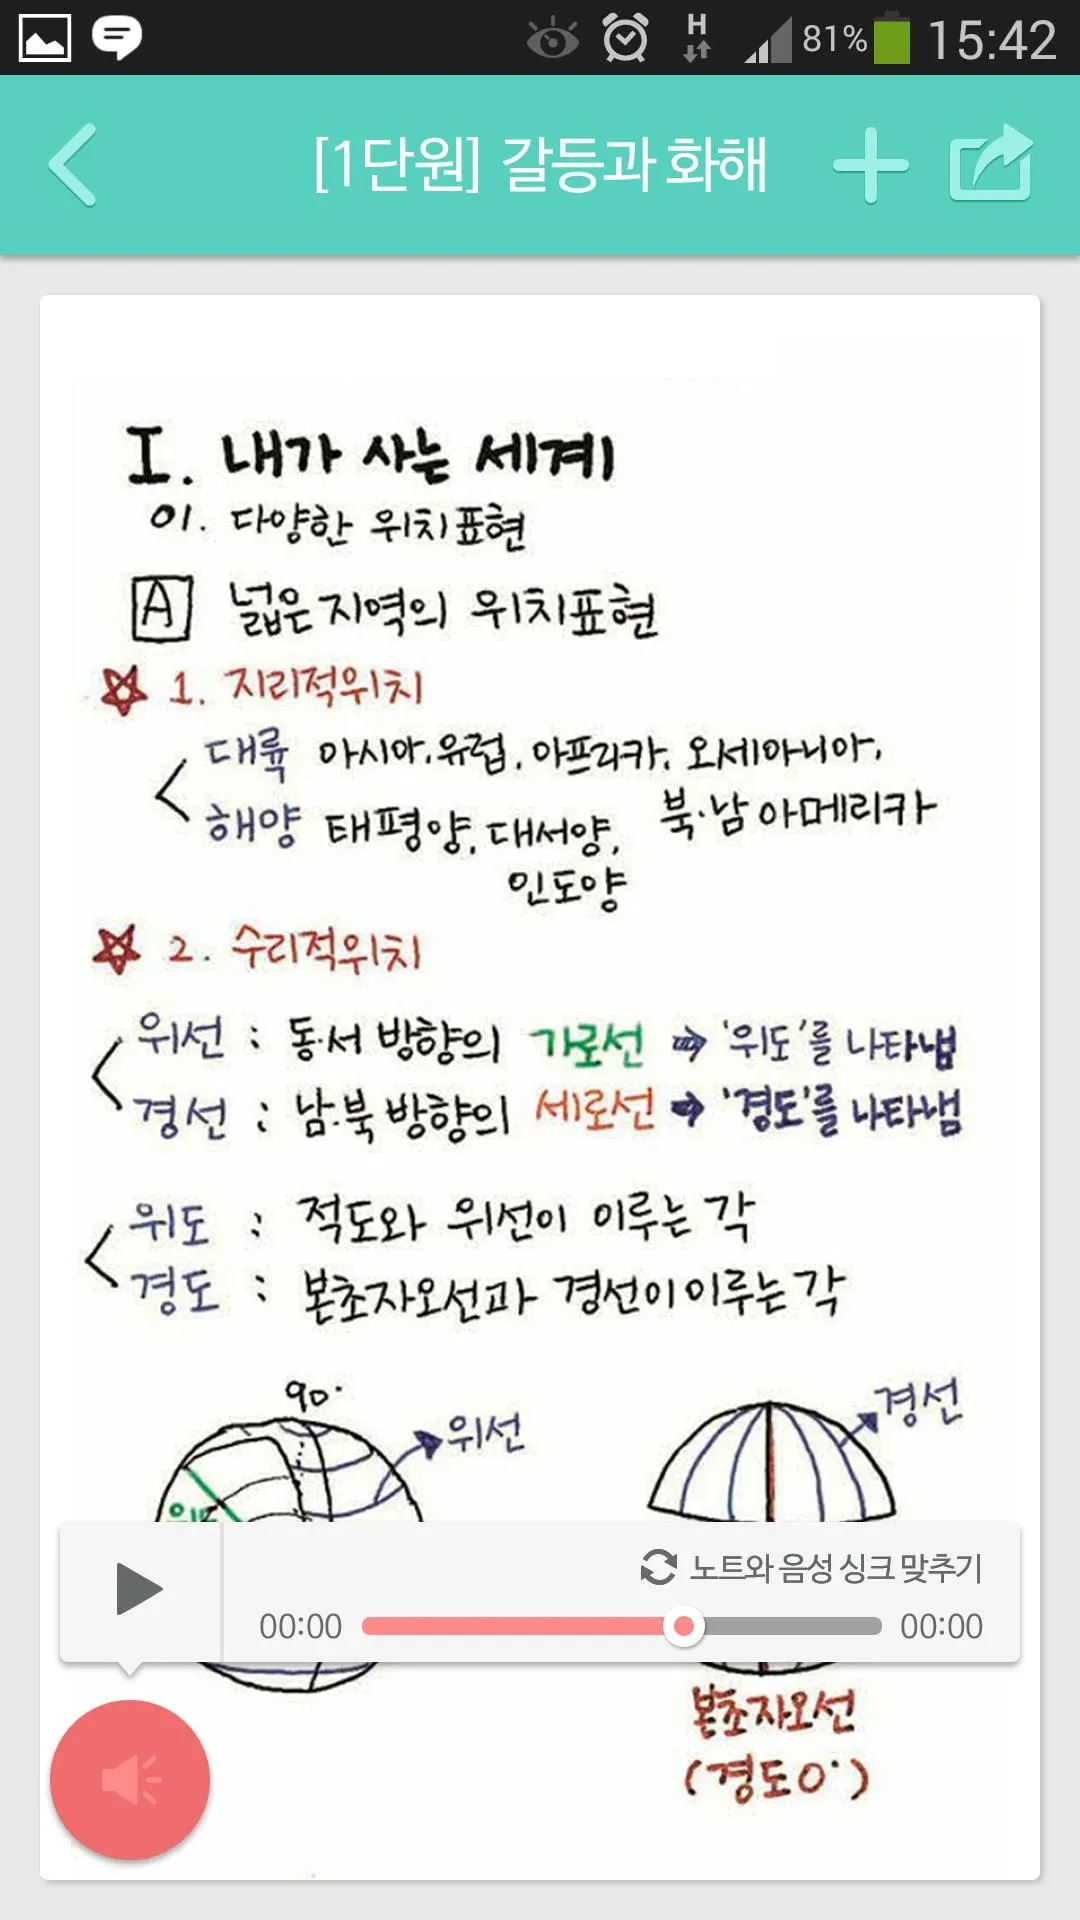 H
81%
15:42
[1단원] 갈등과 화해
I. 내가 사는 세계
01. 다양한 위치표현
A 넓은 지역의 위치표현
1. 지리적위치
대륙 아시아, 유럽, 아프리카, 오세아니아,
북·남 아메리카
해양 태평양, 대서양,
인도양
2. 수리적위치
위선 : 동·서 방향의 가로선 ➡ '위도'를 나타냄
경선 : 남·북 방향의 세로선 ➡ '경도'를 나타냄
위도 : 적도와 위선이 이루는 각
경도 : 본초자오선과 경선이 이루는 각
90°
위선
경선
노트와 음성 싱크 맞추기
00:00
00:00
본초자오선
(경도0°)